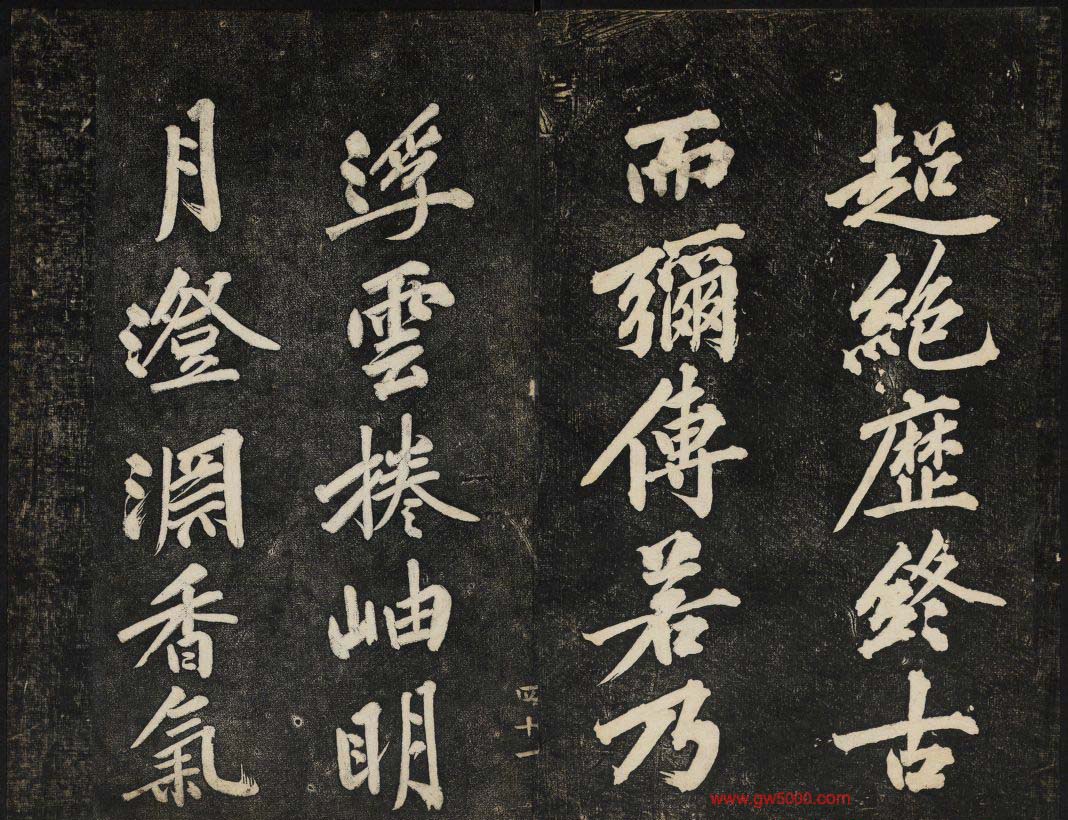 超絶歷終古
而彌傳若乃
浮雲捲岫明
月澄淵香氣
四十一
www.gw5000.com